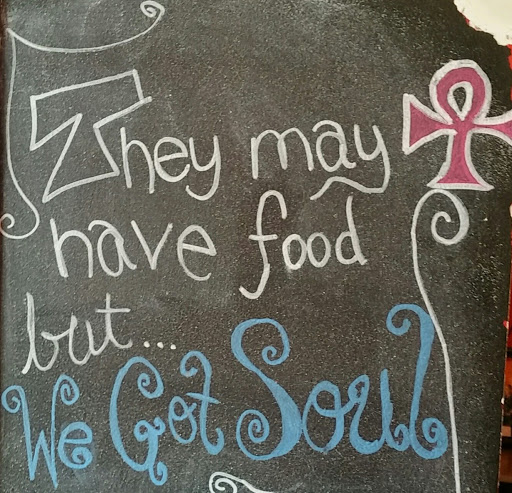 They may
have food
but...
We Got Soul